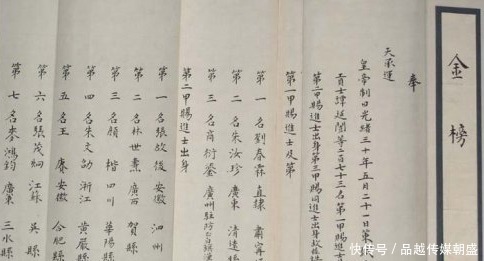 金榜
奉
天承運
皇帝制曰光緒三十年五月二十一日策
貢士譚延闓等二百七十三名第一甲賜進士
第二甲賜進士出身第三甲賜同進士出身故
第一甲賜進士及第
第一名劉春霖直隸肅甯
第二名朱汝珍廣東清遠
第三名商衍鎏廣州駐防正白旗漢
第二甲賜進士出身
第一名張啟後安徽泗州
第二名林世燾廣西賀縣
第三名顏楷四川華陽縣
第四名朱文劭浙江黃巖縣
第五名王賡安徽合肥縣
第六名張茂炯江蘇吳縣
第七名麥鴻鈞廣東三水縣
快资讯 / 品越传媒朝盛